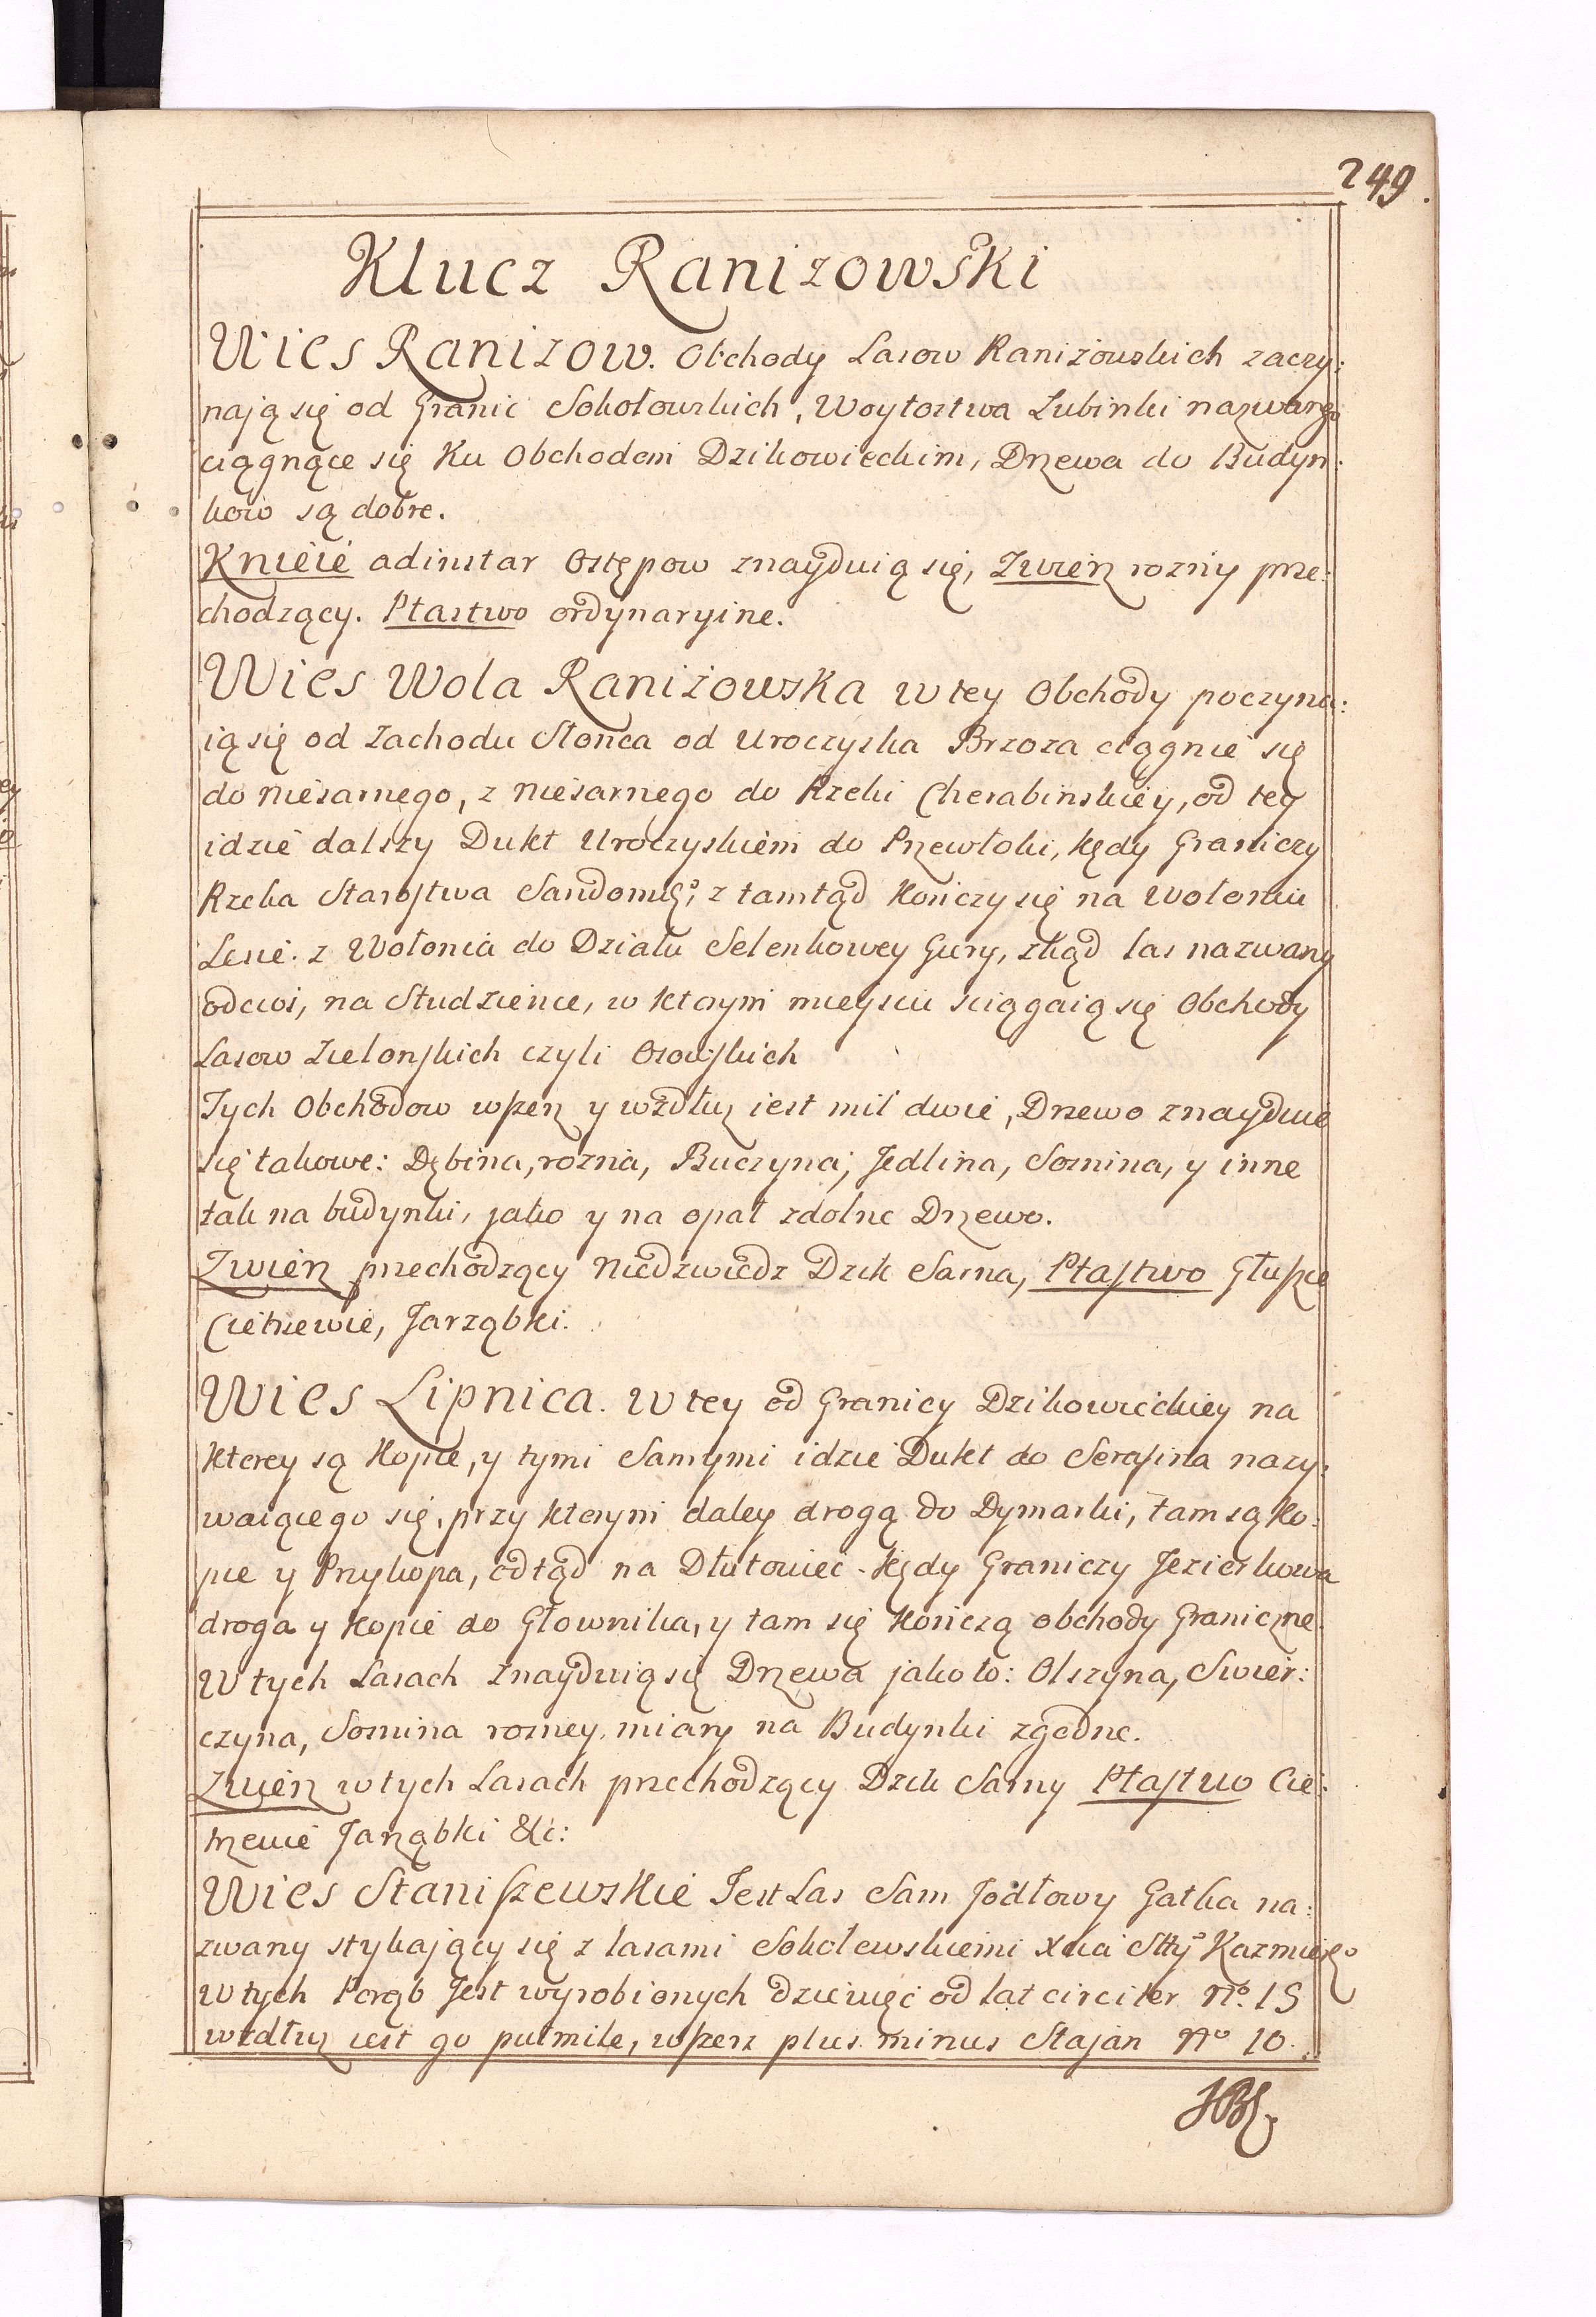 249.
Klucz Ranizowski
Wies Ranizow. Obchody Lasow Raniżowskich zaczy:
nają się od Granic Sokołowskich, Woytostwa Lubinki nazwanego
ciągnące się Ku Obchodom Dzikowieckim, Drzewa do Budyn:
kow są dobre.
Knieie adinstar Ostępow znayduią się, Zwierz rozny prze:
chodzący. Ptastwo ordynaryine.
Wies Wola Raniżowska W tey Obchody poczyna:
ią się od Zachodu Słonca od Uroczyska Brzoza ciągnie się
do Niesarnego, z Niesarnego do Rzeki Cherabinskiey, od tey
idzie dalszy Dukt Uroczyskiem do Przewłoki, kędy Graniczy
Rzeka Starostwa Sandomgo; z tamtąd Kończy się na Wołoniu
Lesie. z Wołonia do Działu Selenkowey Gury, zkąd las nazwany
, na Studzience, w ktorym mieyscu sciągaią się Obchody
Lasow Zielonskich czyli Osowskich
Tych Obchodow wszerz y wzdłuz iest mil dwie, Drzewo znayduie
się takowe: Dębina, rozna, Buczyna, Jedlina, Sosnina, y inne
tak na budynki, jako y na opał zdolne Drzewo.
Zwierz przechodzący Niedzwiedz Dzik Sarna, Ptastwo Głuszce
Cietrzewie, Jarząbki.
Wies Lipnica. W tey od Granicy Dzikowieckiey na
Ktorey są Kopce, y tymi Samymi idzie Dukt do Serafina nazy:
waiącego się, przy ktorym daley drogą do Dymarki, tam są Ko:
pce y Przykopa, odtąd na Dłutowiec. Kędy Graniczy Jeziorkowa
droga y Kopce do Głownika, y tam się Kończą obchody Graniczne.
W tych Lasach znayduią się Drzewa jako to: Olszyna, Swier:
czyna, Sosnina rozney miary na Budynki zgodne.
Zwierz w tych Lasach przechodzący Dzik Sarny Ptastwo Cie:
trzewie Jarząbki &c:
Wies Staniszewskie Jest Las Sam Jodłowy Gatka na:
zwany stykający się z lasami Sokołowskiemi Xcia Kazmierzo
W tych Porąb Jest wyrobionych dziewięć od lat circiter No. 15
wzdłuz iest go pułmile, wszerz plus minus Stajan No 10.